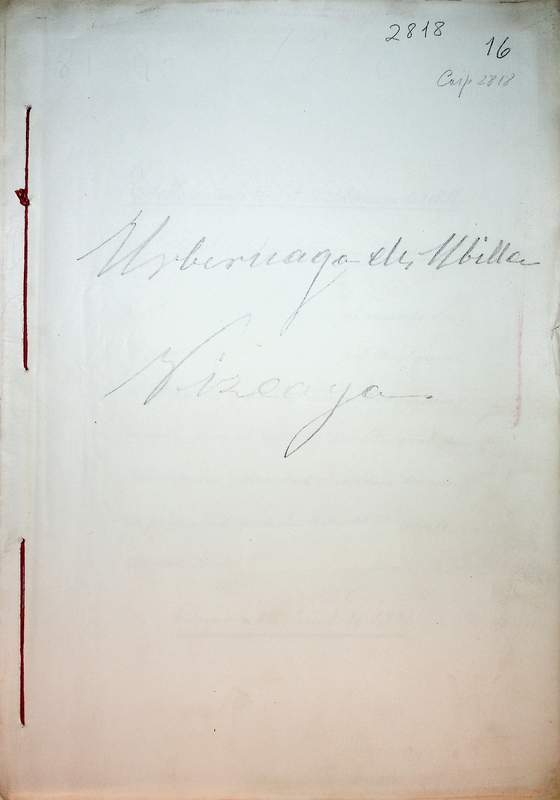 2818
16
Caip 2818
Urberuaga de Ubilla
Vizcaya